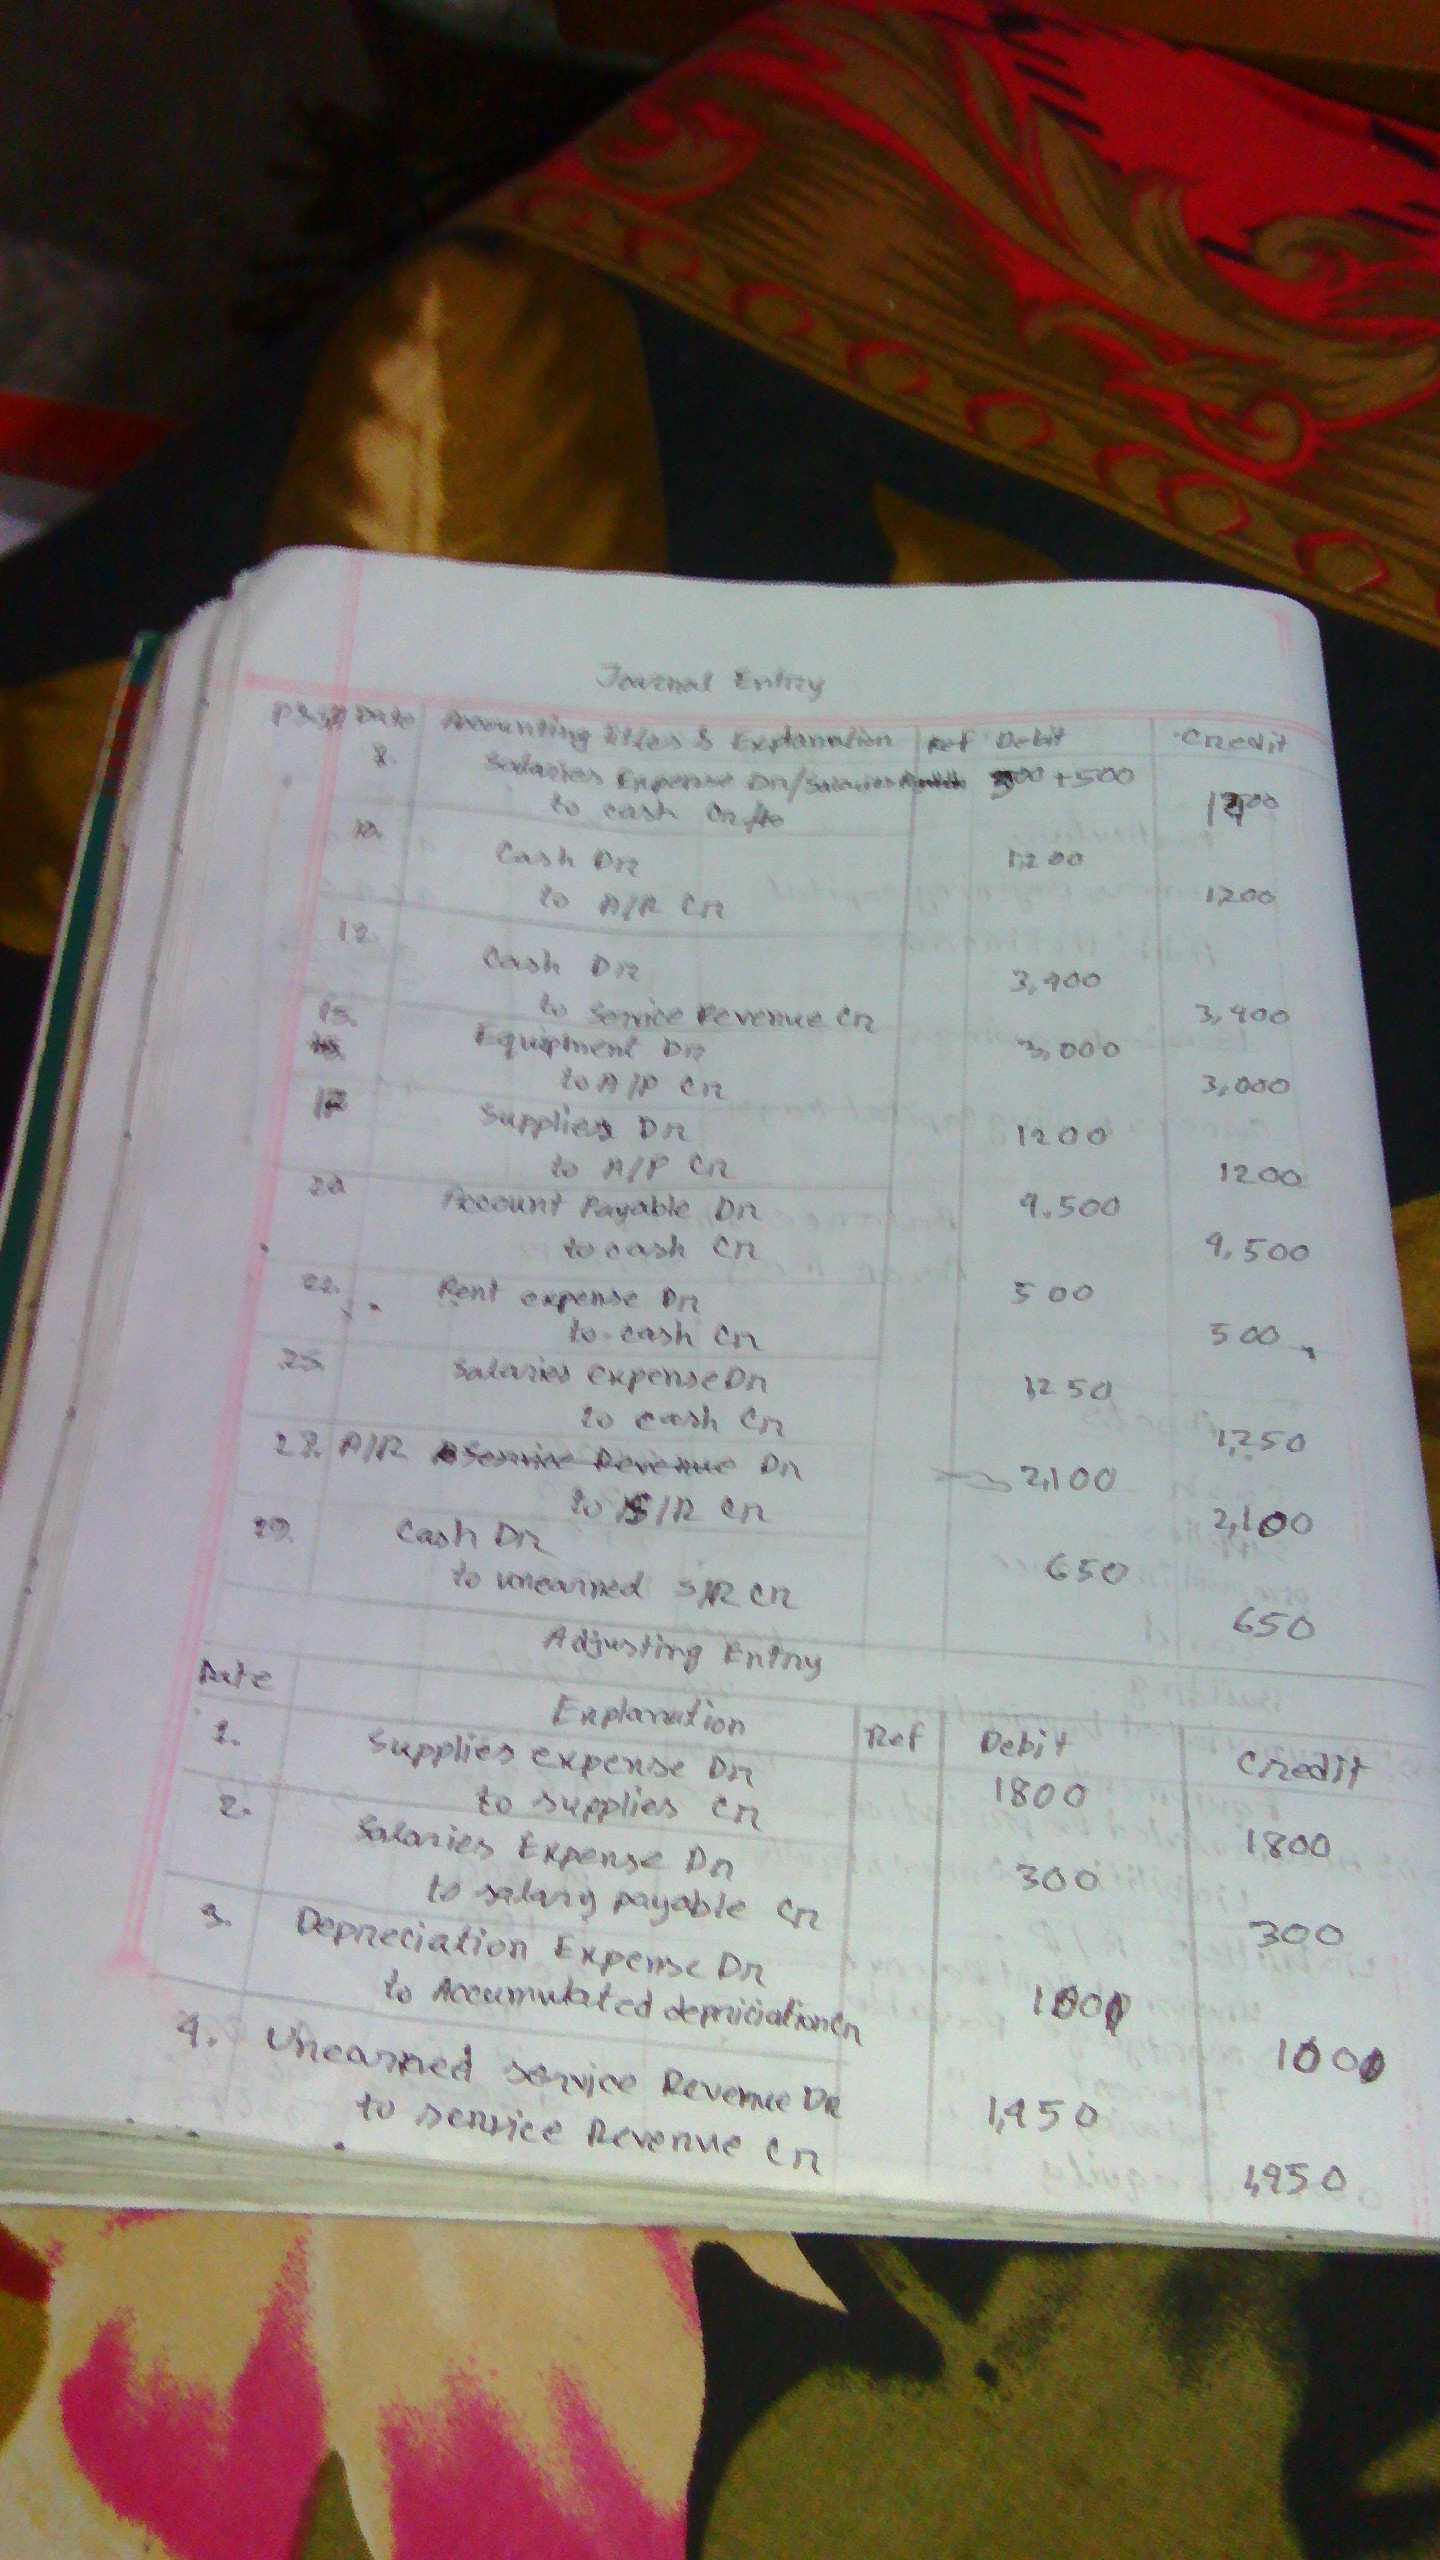 Journal Entry
Date Accounting Titles & Explanation Ref Debit Credit
8. Salaries Expense Dr/Salaries 00+500
to cash Cr
Cash Dr 1,200
to A/R Cr 1200
12. Cash Dr 3,400
to Service Revenue Cr 3,400
15. Equipment Dr 3,000
to A/P Cr 3,000
17 Supplies Dr 1200
to A/P Cr 1200
20. Account Payable Dr 4.500
to cash Cr 4,500
22. Rent expense Dr 500
to cash Cr 500
25. Salaries expense Dr 1,250
to cash Cr 1,250
27. A/R Service Revenue Dr 2,100
to S/R Cr 2,100
29. Cash Dr 650
to unearned S/R Cr 650
Adjusting Entry
Date Explanation Ref Debit Credit
1. Supplies expense Dr 1800
to supplies Cr 1800
2. Salaries Expense Dr 300
to salary payable Cr 300
3. Depreciation Expense Dr
to Accumulated depriciation Cr
4. Unearned service Revenue Dr 1,450
to service Revenue Cr 1,450